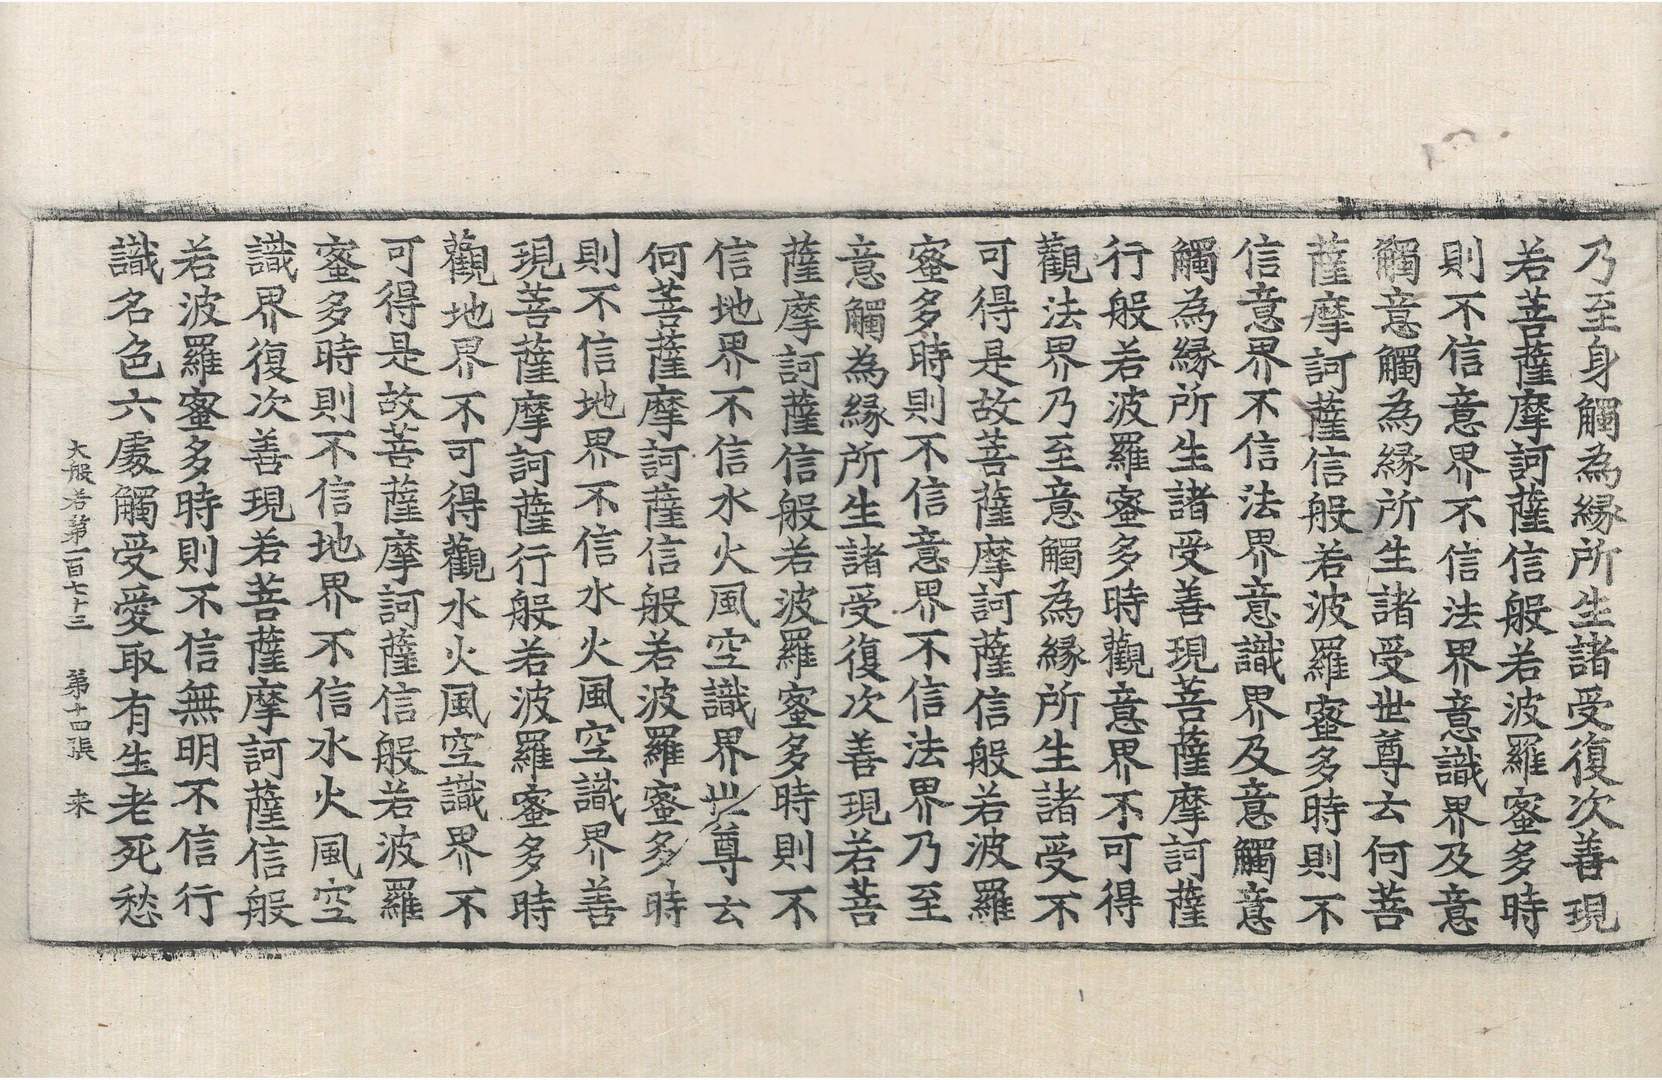 乃至身觸為緣所生諸受復次善現
若菩薩摩訶薩信般若波羅蜜多時
則不信意界不信法界意識界及意
觸意觸為緣所生諸受世尊云何菩
薩摩訶薩信般若波羅蜜多時則不
信意界不信法界意識界及意觸意
觸為緣所生諸受善現菩薩摩訶薩
行般若波羅蜜多時觀意界不可得
觀法界乃至意觸為緣所生諸受不
可得是故菩薩摩訶薩信般若波羅
蜜多時則不信意界不信法界乃至
意觸為緣所生諸受復次善現若菩
薩摩訶薩信般若波羅蜜多時則不
信地界不信水火風空識界世尊云
何菩薩摩訶薩信般若波羅蜜多時
則不信地界不信水火風空識界善
現菩薩摩訶薩行般若波羅蜜多時
觀地界不可得觀水火風空識界不
可得是故菩薩摩訶薩信般若波羅
蜜多時則不信地界不信水火風空
識界復次善現若菩薩摩訶薩信般
若波羅蜜多時則不信無明不信行
識名色六處觸受愛取有生老死愁
大般若第一百七十三 第十四張 来